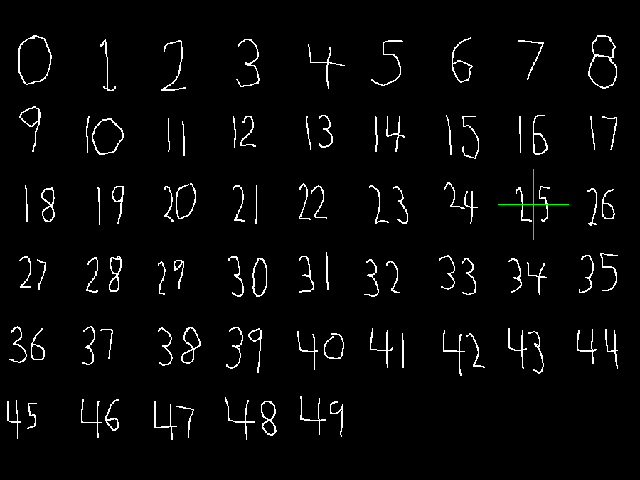 0 1 2 3 4 5 6 7 8
9 10 11 12 13 14 15 16 17
18 19 20 21 22 23 24 25 26
27 28 29 30 31 32 33 34 35
36 37 38 39 40 41 42 43 44
45 46 47 48 49